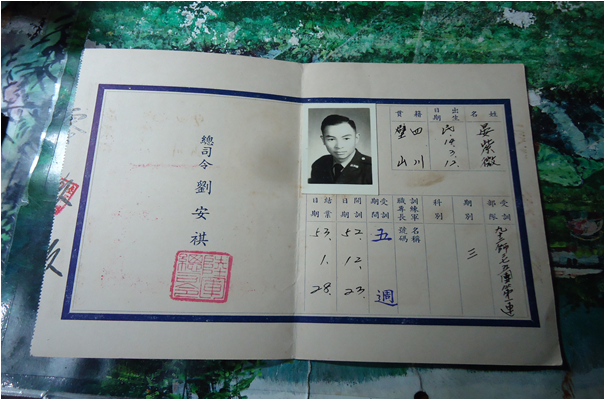 姓名
晏紫微
出生日期
民.19.3.12.
籍貫
四川
璧山
受訓部隊
期別
三
科別
訓練軍職專長
名稱
號碼
受訓期間
五週
開訓日期
52. 12. 23.
結業日期
53. 1. 28.
總司令 劉安祺